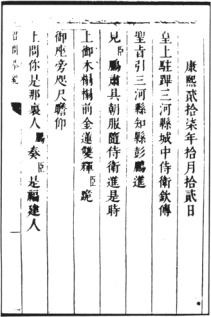 康熙貳拾柒年拾月拾貳日
皇上駐蹕三河縣城中侍衛欽傳
聖旨引三河縣知縣彭鵬進
見臣鵬肅具朝服隨侍衛進是時
上御木榻榻前金蓮雙輝臣跪
御座旁咫尺瞻仰
上問你是那裏人臣鵬奏臣是福建人